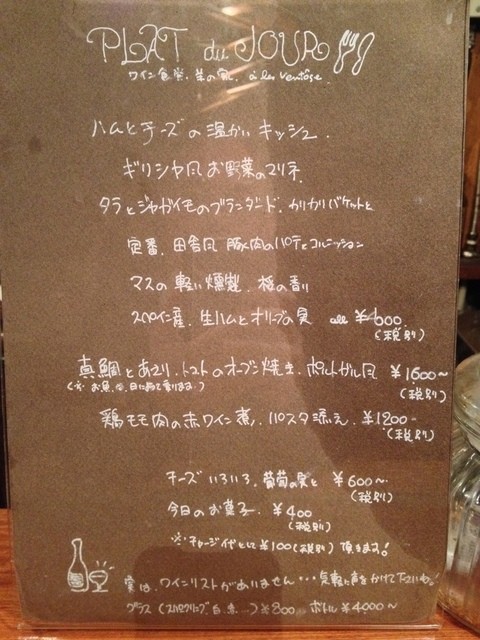 PLAT du JOUR
ワイン食堂. à les ventôse.
ハムとチーズの温かいキッシュ.
ギリシャ風お野菜のマリネ.
タラとジャガイモのブランダード. カリカリバケットと
定番. 田舎風 豚肉のパテとコルニッション
マスの軽い燻製. 桜の香り
スペイン産. 生ハムとオリーブの実 all ¥600
(税別)
真鯛とあさり. トマトのオーブン焼き. ポルトガル風 ¥1600〜
(税別)
(※お魚は、日に寄って変ります。)
鶏モモ肉の赤ワイン煮. パスタ添え. ¥1200-
(税別)
チーズいろいろ. 葡萄の実と ¥600〜
(税別)
今日のお菓子. ¥400
(税別)
※チャージ代として¥100(税別)頂きます!
実は、ワインリストがありません・・・気軽に声をかけて下さいね。
グラス (スパークリング 白. 赤...) ¥800 ボトル ¥4000〜